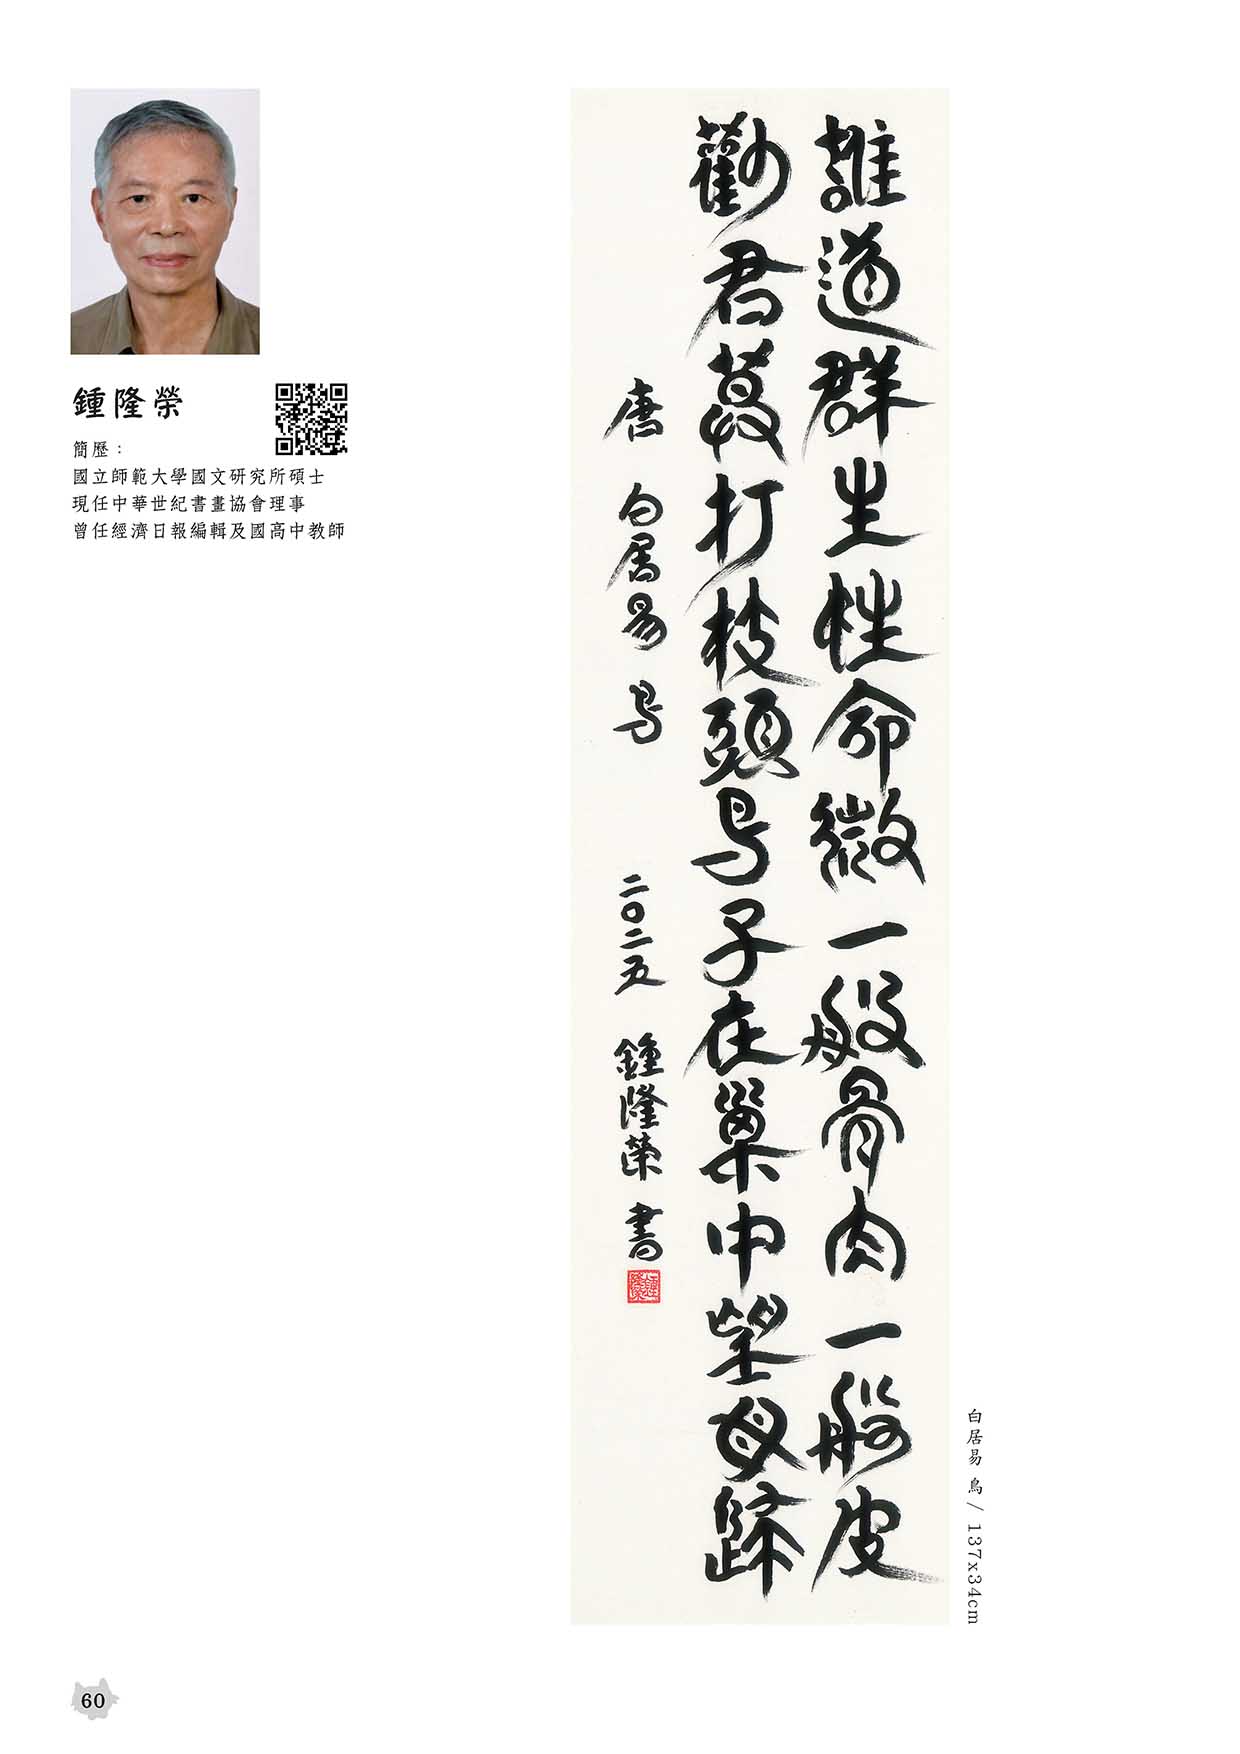 鍾隆榮
簡歷：
國立師範大學國文研究所碩士
現任中華世紀書畫協會理事
曾任經濟日報編輯及國高中教師
誰道群生性命微一般骨肉一般皮
勸君莫打枝頭鳥子在巢中望母歸
唐 白居易 鳥
二〇二五 鍾隆榮 書
白居易 鳥 / 137x34cm
60